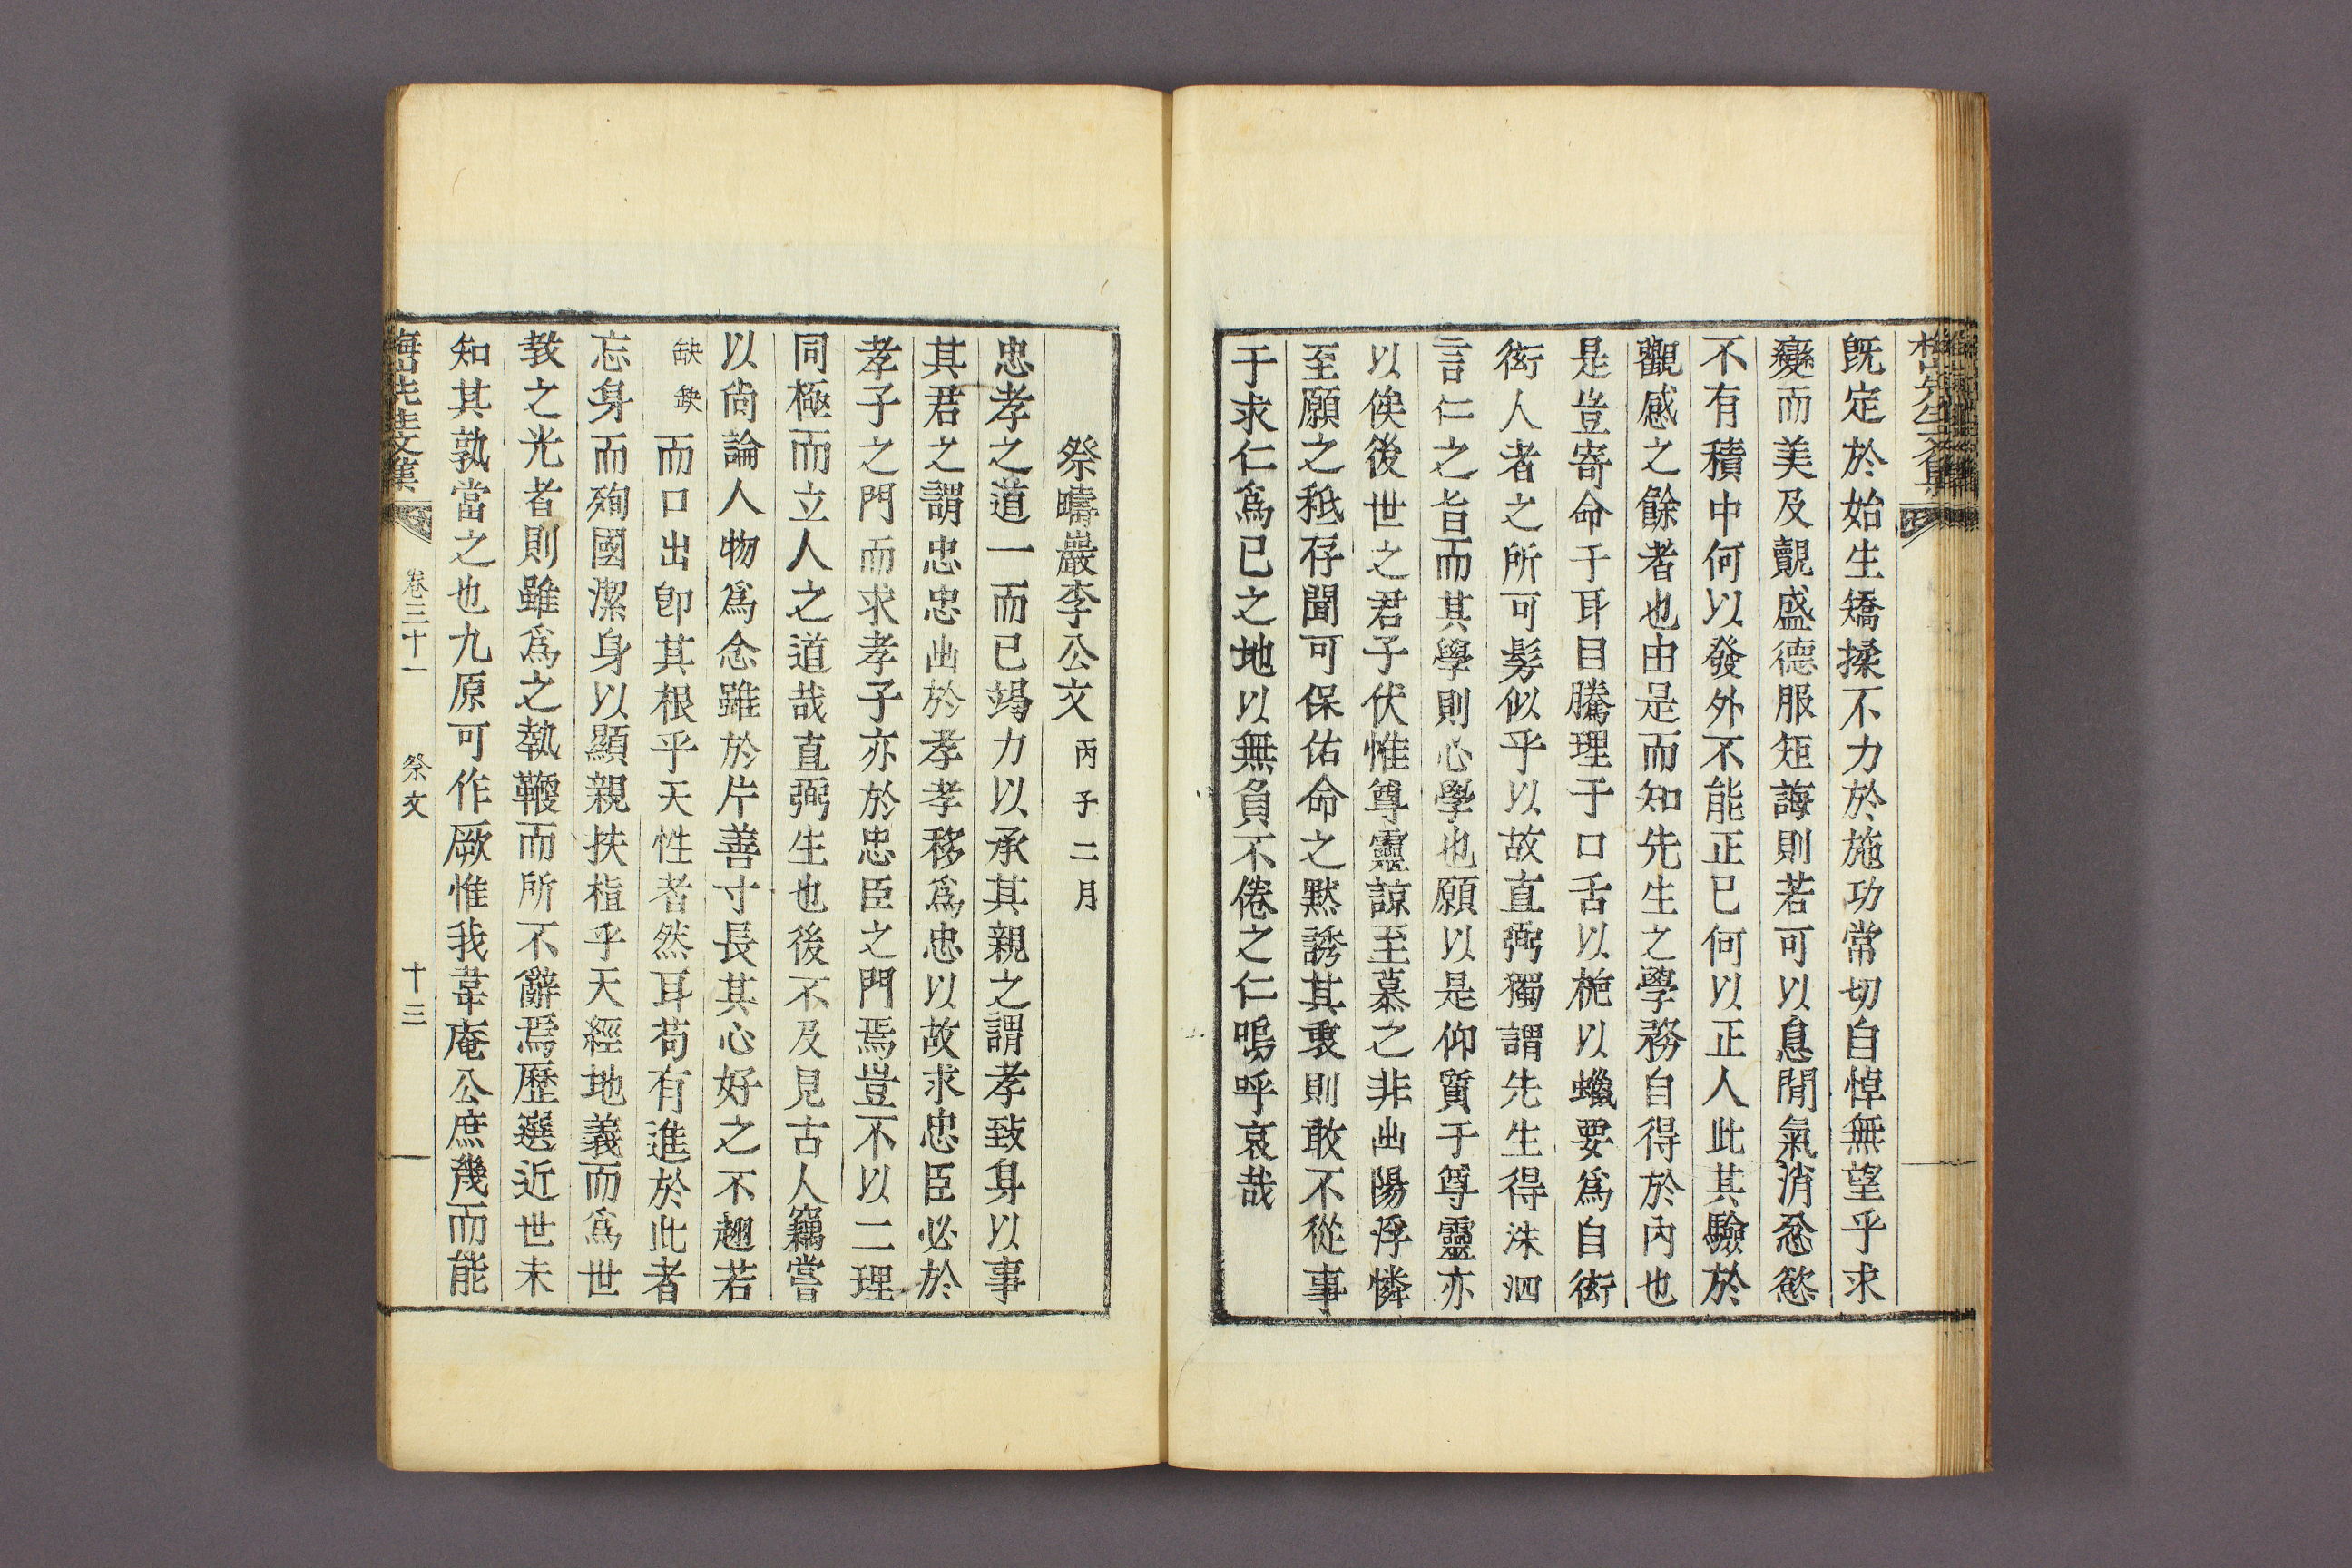 既定於始生矯揉不力於施功常切自悼無望乎求
變而美及覿盛德服矩誨則若可以息鬧氣消忿慾
不有積中何以發外不能正已何以正人此其驗於
觀感之餘者也由是而知先生之學務自得於內也
是豈寄命于耳目騰理于口舌以梔以蠟要爲自衒
衒人者之所可髣似乎以故直弼獨謂先生得洙泗
言仁之旨而其學則心學也願以是仰質于尊靈亦
以俟後世之君子伏惟尊靈諒至慕之非出陽浮憐
至願之秪存聞可保佑命之黙誘其衷則敢不從事
于求仁爲已之地以無負不倦之仁嗚呼哀哉
祭疇巖李公文 丙子二月
忠孝之道一而已竭力以承其親之謂孝致身以事
其君之謂忠忠出於孝孝移爲忠以故求忠臣必於
孝子之門而求孝子亦於忠臣之門焉豈不以二理
同極而立人之道哉直弼生也後不及見古人竊嘗
以尙論人物爲念雖於片善寸長其心好之不趐若
缺缺 而口出卽其根乎天性者然耳苟有進於此者
忘身而殉國潔身以顯親扶植乎天經地義而爲世
敎之光者則雖爲之執鞭而所不辭焉歷選近世未
知其孰當之也九原可作厥惟我韋庵公庶幾而能
梅山先生文集 卷三十一 祭文 十三